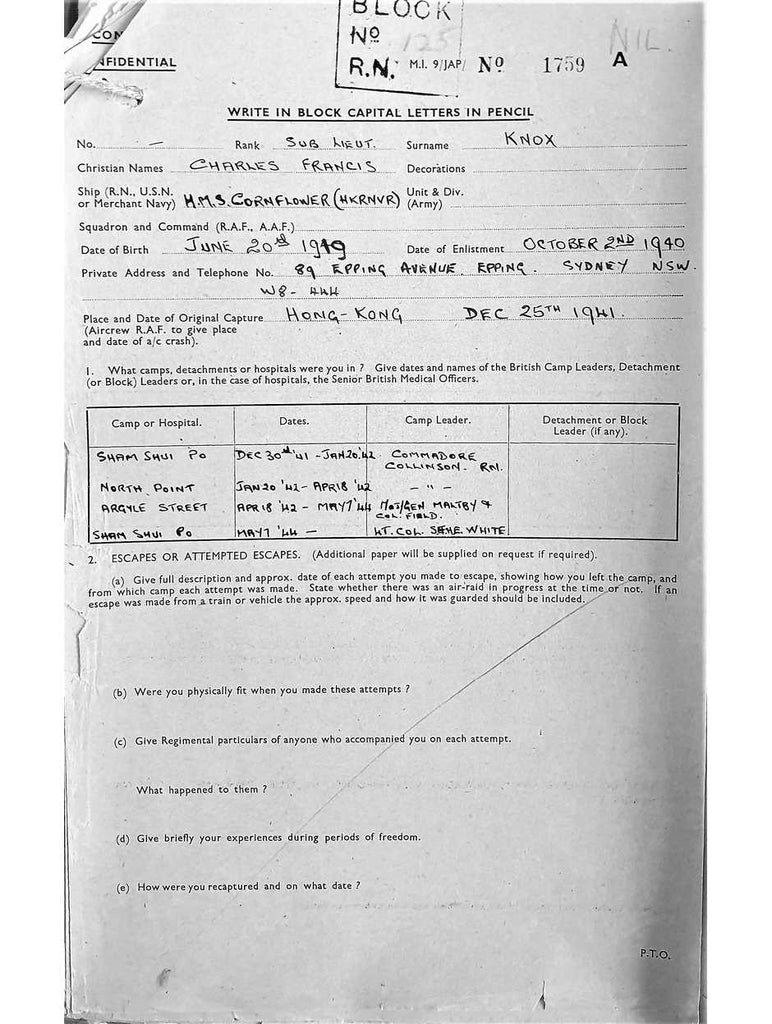 BLOCK
CON
Nº 125 NIL.
NFIDENTIAL
R.N. M.I. 9/JAP/ Nº 1759 A
WRITE IN BLOCK CAPITAL LETTERS IN PENCIL
No. — Rank SUB LIEUT. Surname KNOX
Christian Names CHARLES FRANCIS Decorations
Ship (R.N., U.S.N. or Merchant Navy) H.M.S. CORNFLOWER (HKRNVR) Unit & Div. (Army)
Squadron and Command (R.A.F., A.A.F.)
Date of Birth JUNE 20th 1919 Date of Enlistment OCTOBER 2ND 1940
Private Address and Telephone No. 89 EPPING AVENUE. EPPING. SYDNEY NSW.
W8-444
Place and Date of Original Capture HONG-KONG DEC 25TH 1941.
(Aircrew R.A.F. to give place
and date of a/c crash).
1. What camps, detachments or hospitals were you in ? Give dates and names of the British Camp Leaders, Detachment
(or Block) Leaders or, in the case of hospitals, the Senior British Medical Officers.
Camp or Hospital. Dates. Camp Leader. Detachment or Block Leader (if any).
SHAM SHUI PO DEC 30th '41 - JAN 20.'42 COMMADORE COLLINSON. RN.
NORTH POINT JAN 20 '42 - APR 18 '42 - " -
ARGYLE STREET APR 18 '42 - MAY 7 '44 MAJ/GEN MALTBY & COL. FIELD.
SHAM SHUI PO MAY 7 '44 - LT. COL. WHITE
2. ESCAPES OR ATTEMPTED ESCAPES. (Additional paper will be supplied on request if required).
(a) Give full description and approx. date of each attempt you made to escape, showing how you left the camp, and
from which camp each attempt was made. State whether there was an air-raid in progress at the time or not. If an
escape was made from a train or vehicle the approx. speed and how it was guarded should be included.
(b) Were you physically fit when you made these attempts ?
(c) Give Regimental particulars of anyone who accompanied you on each attempt.
What happened to them ?
(d) Give briefly your experiences during periods of freedom.
(e) How were you recaptured and on what date ?
P.T.O.